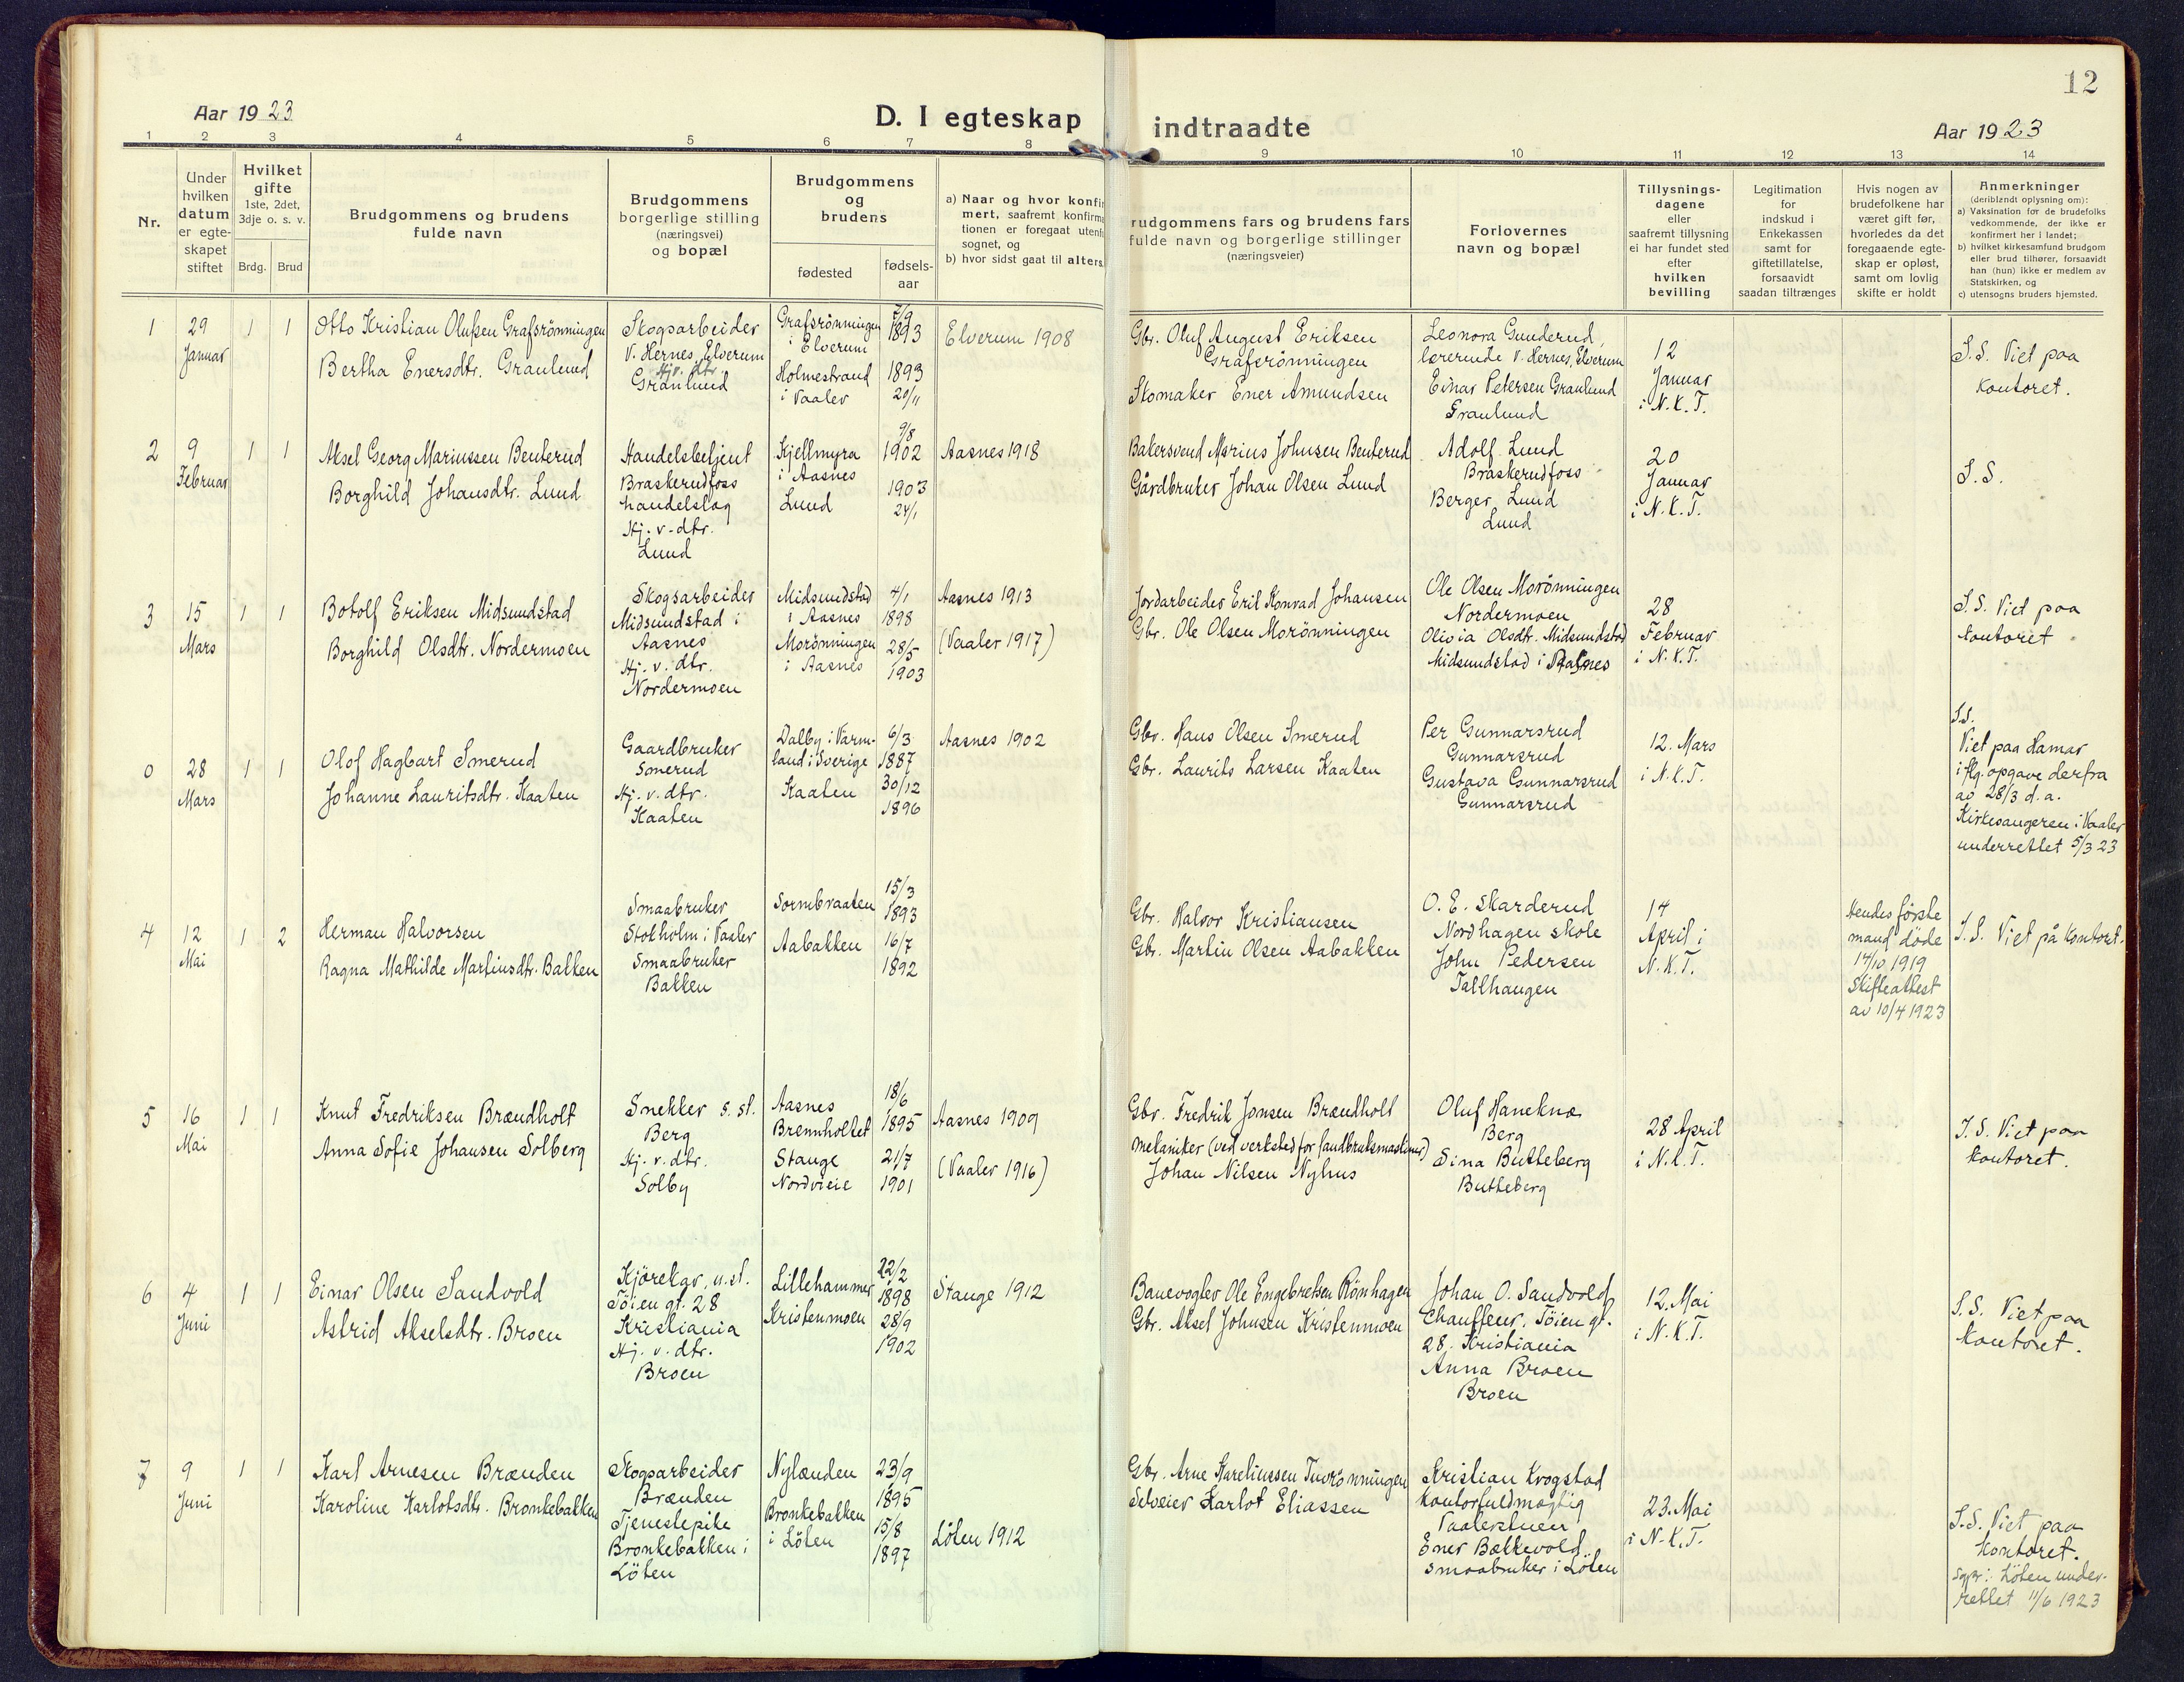 12
Aar 1923
D. I egteskap
indtraadte
Aar 1923
1 2 3 4 5 6 7 8 9 10 11 12 13 14
Nr.
Under
hvilken
datum
er egte-
skapet
stiftet
Hvilket
gifte
1ste, 2det,
3dje o. s. v.
Brdg. Brud
Brudgommens og brudens
fulde navn
Brudgommens
borgerlige stilling
(næringsvei)
og bopæl
Brudgommens
og
brudens
fødested
fødsels-
aar
a) Naar og hvor konfir
mert, saafremt konfirma
tionen er foregaat utenfo
sognet, og
b) hvor sidst gaat til alters.
rudgommens fars og brudens fars
fulde navn og borgerlige stillinger
(næringsveier)
Forlovernes
navn og bopæl
Tillysnings-
dagene
eller
saafremt tillysning
ei har fundet sted
efter
hvilken
bevilling
Legitimation
for
indskud i
Enkekassen
samt for
giftetillatelse,
forsaavidt
saadan tiltrænges
Hvis nogen av
brudefolkene har
været gift før,
hvorledes da det
foregaaende egte-
skap er opløst,
samt om lovlig
skifte er holdt
Anmerkninger
(deriblendt oplysning om):
a) Vaksination før de brudefolks
vedkommende, der ikke er
konfirmert her i landet;
b) hvilket kirkesamfund brudgom
eller brud tilhører, forsaavidt
han (hun) ikke er medlem av
Statskirken, og
c) utensogns bruders hjemsted.
1
29
Januar
1 1
Otto Kristian Olufsen Grafsrönningen
Bertha Enersdtr. Granlund
Skogsarbeider
V. Hernes, Elverum
Hj. v. dtr.
Granlund
Grafsrönningen
i Elverum
Holmestrand
i Vaaler
7/9
1893
1893
20/11
Elverum 1908
Gbr. Oluf August Eriksen
Grafsrönningen
Skomaker Ener Amundsen
Leonora Gunderud,
lærerinde V. Hernes, Elverum
Einar Petersen Granlund
Granlund
12
Januar
i N.K.T.
S.S. Viet paa
kontoret.
2
9
Februar
1 1
Aksel Georg Mariussen Benterud
Borghild Johansdtr. Lund
Handelsbetjent
Braskerudfoss
handelslag
Hj. v. dtr.
Lund
Kjellmyra
i Aasnes
Lund
9/8
1902
1903
24/1
Aasnes 1918
Bakersvend Marius Johnsen Benterud
Gårdbruker Johan Olsen Lund
Adolf Lund
Braskerudfoss
Berger Lund
Lund
20
Januar
i N.K.T.
S.S.
3
15
Mars
1 1
Botolf Eriksen Midsundstad
Borghild Olsdtr. Nordermoen
Skogsarbeider
Midsundstad i
Aasnes
Hj. v. dtr.
Nordermoen
Midsundstad
i Aasnes
Morönningen
i Aasnes
4/1
1898
28/5
1903
Aasnes 1913
(Vaaler 1917)
Jordarbeider Erik Konrad Johansen
Gbr. Ole Olsen Morönningen
Ole Olsen Morönningen
Nordermoen
Olivia Olsdtr. Midsundstad
Midsundstad i Aasnes
28
Februar
i N.K.T.
S.S. Viet paa
kontoret
0
28
Mars
1 1
Olof Hagbart Smerud
Johanne Lauritsdtr. Kaaten
Gaardbruker
Smerud
Hj. v. dtr.
Kaaten
Dalby i Värm-
land i Sverige
Kaaten
6/3
1887
30/12
1896
Aasnes 1902
Gbr. Hans Olsen Smerud
Gbr. Laurits Larsen Kaaten
Per Gunnarsrud
Gunnarsrud
Gustava Gunnarsrud
Gunnarsrud
12. Mars
i N.K.T.
S.S.
Viet paa Hamar
iflg. opgave derfra
av 28/3 d.a.
Kirkesangeren i Vaaler
underrettet 5/3 23
4
12
Mai
1 2
Herman Halvorsen
Ragna Mathilde Martinsdtr. Bakken
Smaabruker
Stokholm i Vaaler
Smaabruker
Bakken
Sormbraaten
Aabakken
15/3
1893
16/7
1892
Gbr. Halvor Kristiansen
Gbr. Martin Olsen Aabakken
O. E. Skarderud
Nordhagen skole
John Pedersen
Tallhaugen
14
April i
N.K.T.
Hendes første
mand døde
17/10 1919
Skifteattest
av 10/4 1923
S.S. Viet på kontoret.
5
16
Mai
1 1
Knut Fredriksen Brændholt
Anna Sofie Johansen Solberg
Snekker s. st.
Berg
Hj. v. dtr.
Solby
Aasnes
Brennholtet
Stange
Nordvieie
18/6
1895
21/7
1901
Aasnes 1909
(Vaaler 1916)
Gbr. Fredrik Jonsen Brændholt
mekaniker (ved verksted for landbruksmaskiner)
Johan Nilsen Nyhus
Oluf Haneknæ
Berg
Sina Butteberg
Butteberg
28 April
i N.K.T.
S.S. Viet paa
kontoret.
6
4
Juni
1 1
Einar Olsen Sandvold
Astrid Akselsdtr. Broen
Kjörekar, u. st.
Töien gt. 28
Kristiania
Hj. v. dtr.
Broen
Lillehammer
Kristenmoen
22/2
1898
28/9
1902
Stange 1912
Banevogter Ole Engebretsen Rönhagen
Gbr. Aksel Johnsen Kristenmoen
Johan O. Sandvold,
Chauffeur, Töien gt.
28. Kristiania
Anna Broen
Broen
12. Mai
i N.K.T.
S.S. Viet paa
kontoret.
7
9
Juni
1 1
Karl Arnesen Brænden
Karoline Karlotsdtr. Bronkebakken
Skogsarbeider
Brænden
Tjenestepike
Bronkebakken i
Löten
Nylænden
Bronkebakken
i Löten
23/9
1895
15/8
1897
Löten 1912
Gbr. Arne Kareliussen Tuvrönningen
Selveier Karlot Eliassen
Kristian Krogstad
kontorfuldmægtig
Vaalerstuen
Ener Bækkevold
smaabruker i Löten
23. Mai
i N.K.T.
S.S. Viet paa
Kontoret.
Sgpr. i Löten under-
rettet 11/6 1923